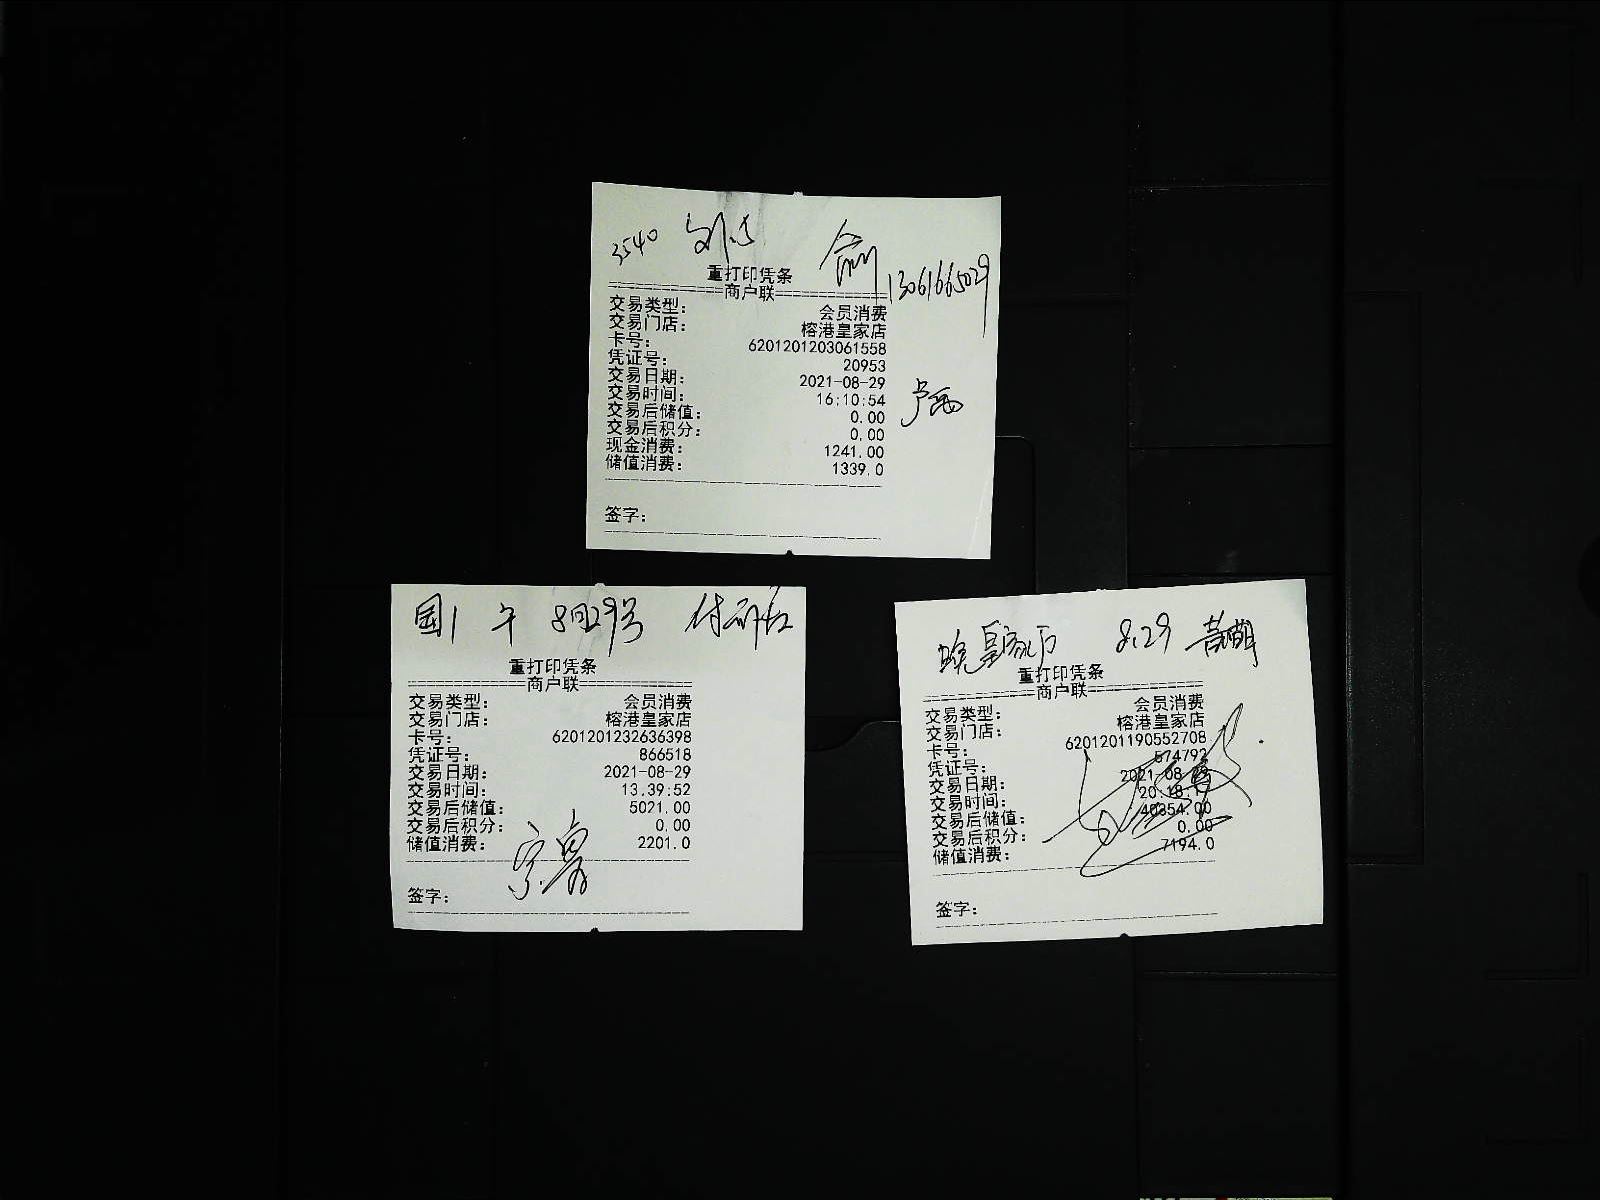 3540
13061665029
重打印凭条
==============商户联==============
交易类型: 会员消费
交易门店: 榕港皇家店
卡号: 6201201203061558
凭证号: 20953
交易日期: 2021-08-29
交易时间: 16:10:54
交易后储值: 0.00
交易后积分: 0.00
现金消费: 1241.00
储值消费: 1339.0
签字:
国1 午 8月29号
重打印凭条
==============商户联==============
交易类型: 会员消费
交易门店: 榕港皇家店
卡号: 6201201232636398
凭证号: 866518
交易日期: 2021-08-29
交易时间: 13:39:52
交易后储值: 5021.00
交易后积分: 0.00
储值消费: 2201.0
签字:
晚 皇家1房 8.29 黄萌
重打印凭条
==============商户联==============
交易类型: 会员消费
交易门店: 榕港皇家店
卡号: 6201201190552708
凭证号: 574792
交易日期: 2021-08-29
交易时间:
交易后储值: 40354.00
交易后积分: 0.00
储值消费: 7194.0
签字: